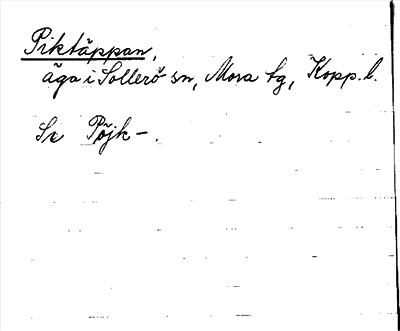 Piktäppan,
äga i Sollerö sn, Mora tg, Kopp. l.
Se Pöjk-.